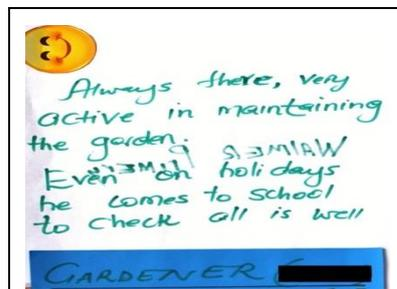 Always there, very
active in maintaining
the garden.
Even on holidays
he comes to school
to check all is well
GARDENER